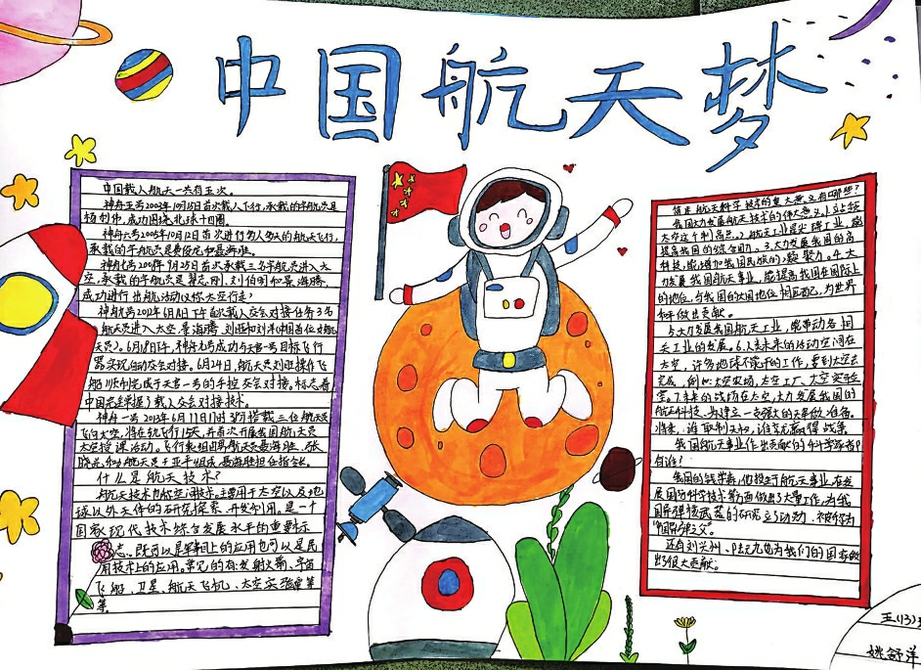 中国航天梦
中国载人航天一共有五次。
神舟五号2003年10月15日首次载人飞行,承载的宇航员是
杨利伟,成功围绕地球十四圈。
神舟六号2005年10月12日首次进行多人多天的航天飞行,
承载的宇航员是费俊龙和聂海胜。
神舟七号2008年9月25日首次承载三名宇航员进入太
空,承载的宇航员是翟志刚、刘伯明和景海鹏,
成功进行出舱活动以称太空行走!
神舟九号2012年6月 首次载人交会对接任务3名
航员进入太空,景海鹏、刘旺和刘洋(中国首位女航
天员)。6月18日下午,神舟九号成功与天宫一号目标飞行
器实现自动交会对接。6月24日,航天员刘旺操作飞
船顺利完成于天宫一号的手控交会对接。标志着
中国完全掌握了载人交会对接技术。
神舟一号2013年6月11日17时37分搭载三位航天员
飞向太空,将在轨飞行15天,并首次开展我国航天员
太空授课活动。飞行乘组由男航天员聂海胜、张
晓光和女航天员王亚平组成,聂海胜担任指令长。
什么是航天技术?
航天技术也称空间技术。主要用于太空以及地
球以外天体的研究探索、开发利用。是一个
国家现代技术综合发展水平的重要标
志。既可以是军事上的应用也可以是民
用技术上的应用。常见的有:发射火箭、宇宙
飞船、卫星、航天飞机、太空实验室等
等
航天科学技术的重大意义有哪些?
我国大力发展航天技术的伟大意义。1.占领
太空这个制高点。2.航天工业是尖端工业,能
提高我国的综合国力。3.大力发展我国的高
科技,能增加我国民族的凝聚力。4.大
力发展我国航天事业,能提高我国在国际上
的地位,与我国的大国地位相匹配,为世界
和平做出贡献。
5.大力发展我国航天工业,能带动各相
关工业的发展。6.人类未来的活动空间在
太空,许多地球不能干的工作,要到太空去
完成,例如:太空农场,太空工厂、太空实验
室。7.未来的战场在太空,大力发展我国的
航天科技,为建立一支强大的天军做准备。
将来,谁取制天权,谁就能赢得战争
我国航天事业作出贡献的科学家都
有谁?
我国的钱学森,他投于航天事业,在发
展国防科学技术等方面做出了大量工作,为我
国导弹核武器的研究立了功劳。被称为
“中国导弹之父”。
还有刘兴洲、陆元九也为我们的国家做
出了很大贡献。
五(13)班
姚舒洋